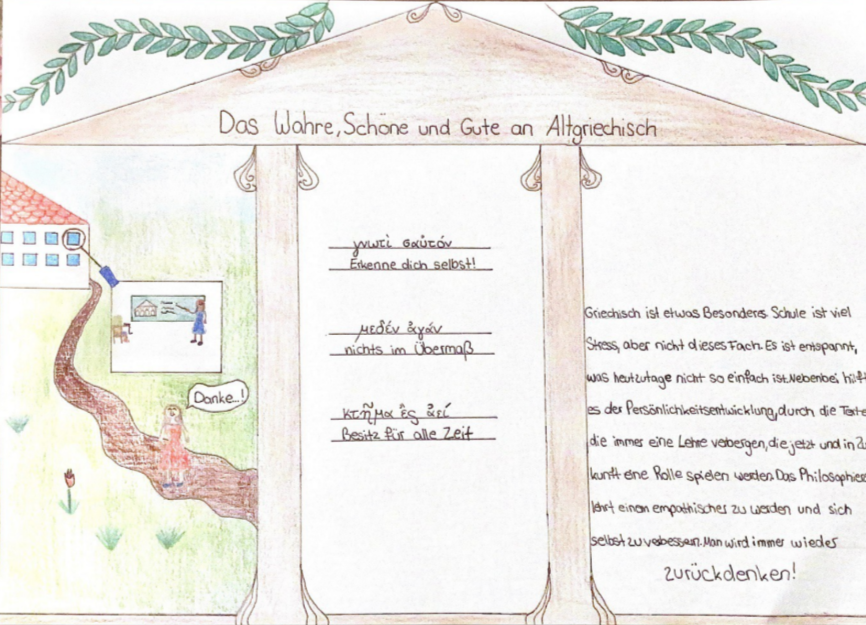 Das Wahre, Schöne und Gute an Altgriechisch
Danke...!
γνωτί σαὐτόν
Erkenne dich selbst!
μεδέν ἀγάν
nichts im Übermaß
κτῆμα ἐς ἀεί
Besitz für alle Zeit
Griechisch ist etwas Besonderes. Schule ist viel
Stress, aber nicht dieses Fach. Es ist entspannt,
was heutzutage nicht so einfach ist. Nebenbei hilft
es der Persönlichkeitsentwicklung, durch die Texte
die immer eine Lehre verbergen, die jetzt und in Zu
kunft eine Rolle spielen werden. Das Philosophier
lehrt einen empathischer zu werden und sich
selbst zu verbessern. Man wird immer wieder
zurückdenken!